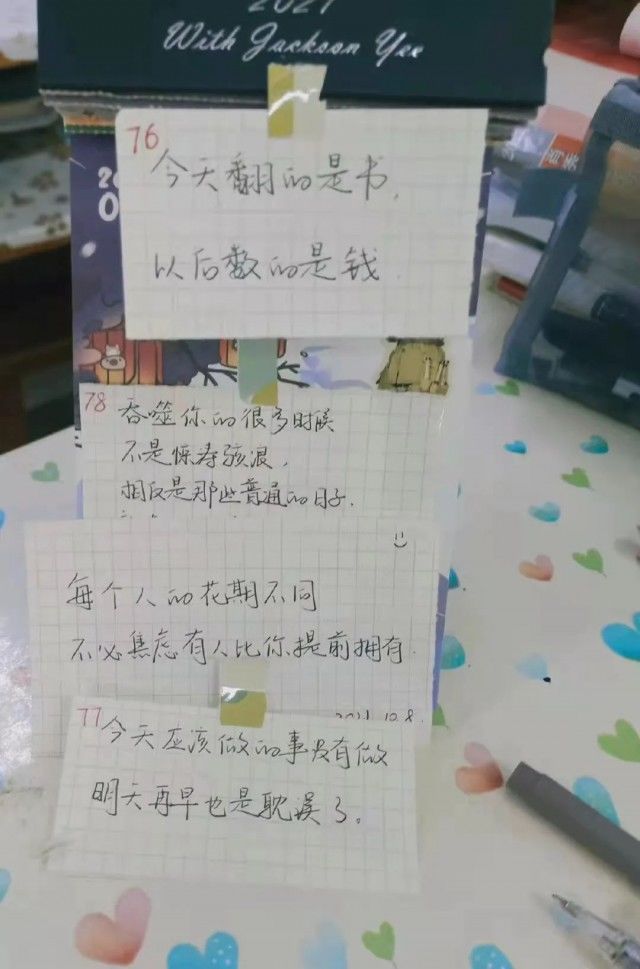 2021
With Jackson Yee
76
今天翻的是书,
以后数的是钱.
78
吞噬你的很多时候
不是惊涛骇浪,
相反是那些普通的日子.
每个人的花期不同
不必焦虑有人比你提前拥有.
2021.12.8.
77
今天应该做的事没有做
明天再早也是耽误了。